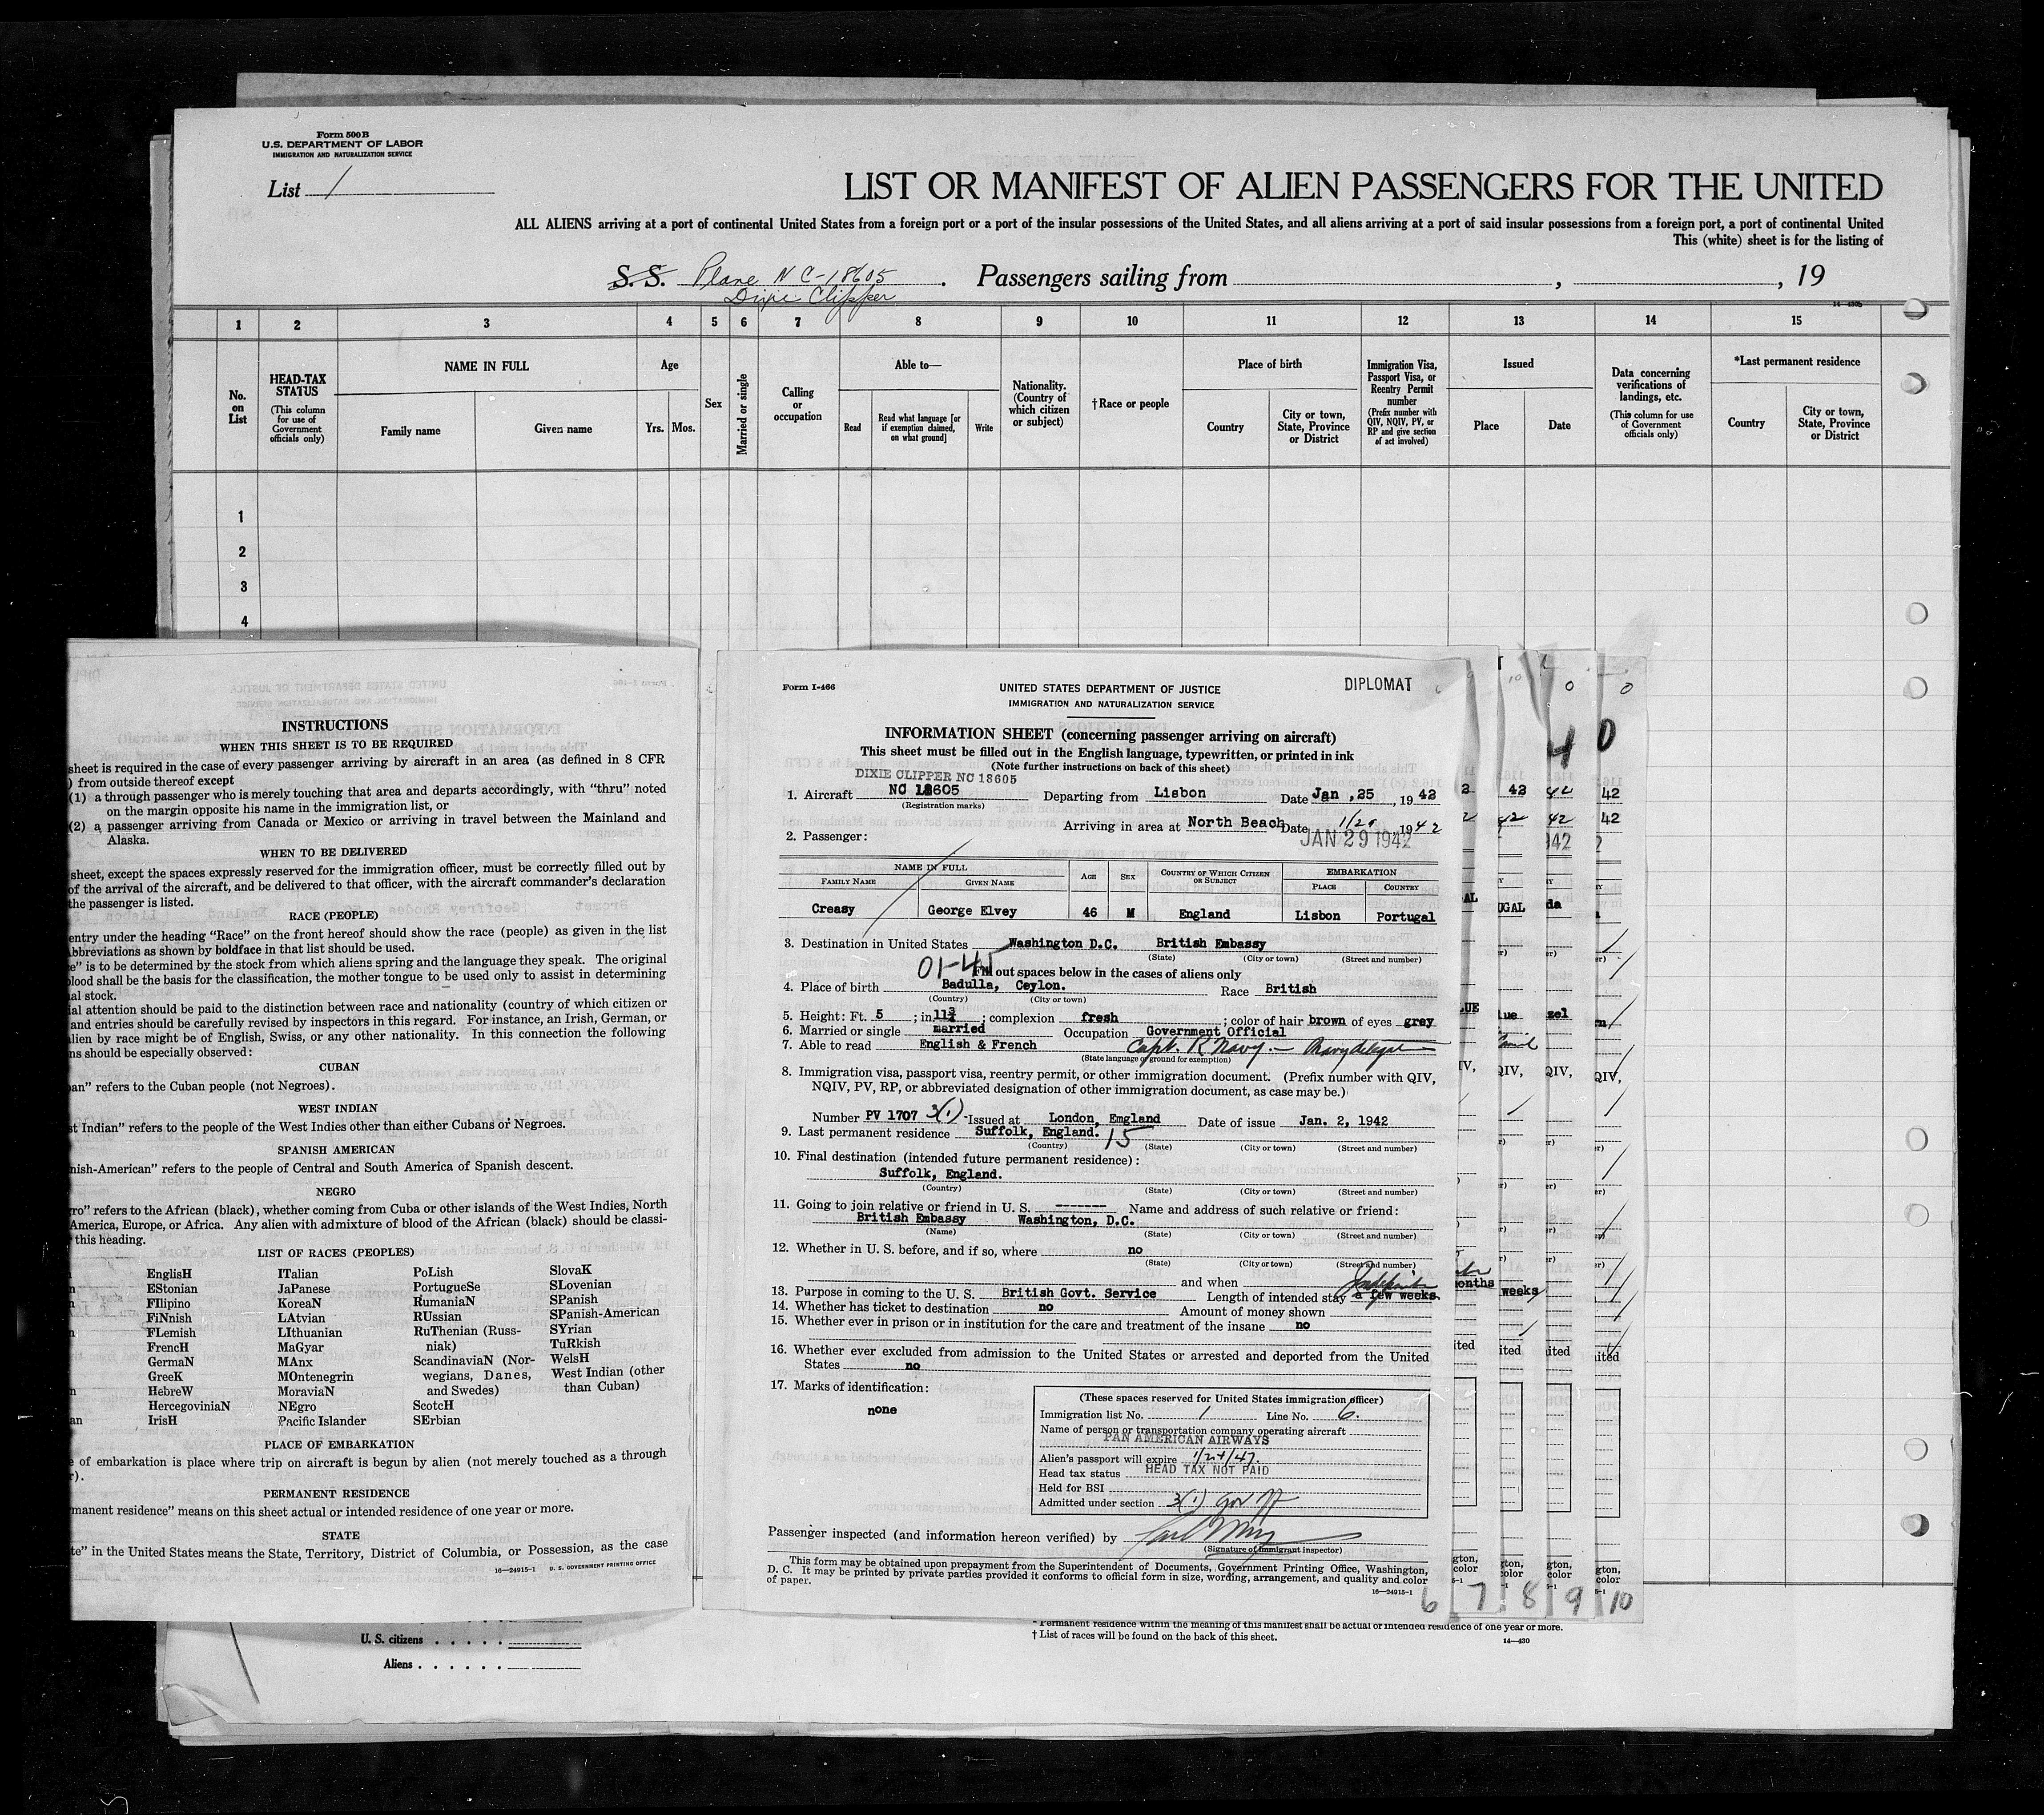 Form 500 B
U.S. DEPARTMENT OF LABOR
IMMIGRATION AND NATURALIZATION SERVICE
List 1
LIST OR MANIFEST OF ALIEN PASSENGERS FOR THE UNITED
ALL ALIENS arriving at a port of continental United States from a foreign port or a port of the insular possessions of the United States, and all aliens arriving at a port of said insular possessions from a foreign port, a port of continental United
This (white) sheet is for the listing of
S. S. Plane NC-18605 . Passengers sailing from , , 19
Dixie Clipper
1 2 3 4 5 6 7 8 9 10 11 12 13 14 15
No. on List
HEAD-TAX STATUS
(This column for use of Government officials only)
NAME IN FULL
Family name
Given name
Age
Yrs.
Mos.
Sex
Married or single
Calling or occupation
Able to—
Read
Read what language [or if exemption claimed, on what ground]
Write
Nationality. (Country of which citizen or subject)
†Race or people
Place of birth
Country
City or town, State, Province or District
Immigration Visa, Passport Visa, or Reentry Permit number
(Prefix number with QIV, NQIV, PV, or RP and give section of act involved)
Issued
Place
Date
Data concerning verifications of landings, etc.
(This column for use of Government officials only)
*Last permanent residence
Country
City or town, State, Province or District
1
2
3
4
INSTRUCTIONS
WHEN THIS SHEET IS TO BE REQUIRED
sheet is required in the case of every passenger arriving by aircraft in an area (as defined in 8 CFR
) from outside thereof except
(1) a through passenger who is merely touching that area and departs accordingly, with "thru" noted
on the margin opposite his name in the immigration list, or
(2) a passenger arriving from Canada or Mexico or arriving in travel between the Mainland and
Alaska.
WHEN TO BE DELIVERED
sheet, except the spaces expressly reserved for the immigration officer, must be correctly filled out by
of the arrival of the aircraft, and be delivered to that officer, with the aircraft commander's declaration
the passenger is listed.
RACE (PEOPLE)
entry under the heading "Race" on the front hereof should show the race (people) as given in the list
Abbreviations as shown by boldface in that list should be used.
e" is to be determined by the stock from which aliens spring and the language they speak. The original
blood shall be the basis for the classification, the mother tongue to be used only to assist in determining
al stock.
ial attention should be paid to the distinction between race and nationality (country of which citizen or
and entries should be carefully revised by inspectors in this regard. For instance, an Irish, German, or
alien by race might be of English, Swiss, or any other nationality. In this connection the following
ns should be especially observed:
CUBAN
an" refers to the Cuban people (not Negroes).
WEST INDIAN
st Indian" refers to the people of the West Indies other than either Cubans or Negroes.
SPANISH AMERICAN
nish-American" refers to the people of Central and South America of Spanish descent.
NEGRO
ro" refers to the African (black), whether coming from Cuba or other islands of the West Indies, North
America, Europe, or Africa. Any alien with admixture of blood of the African (black) should be classi-
this heading.
LIST OF RACES (PEOPLES)
EnglisH
EStonian
FIlipino
FiNnish
FLemish
FrencH
GermaN
GreeK
HebreW
HercegoviniaN
IrisH
ITalian
JaPanese
KoreaN
LAtvian
LIthuanian
MaGyar
MAnx
MOntenegrin
MoraviaN
NEgro
Pacific Islander
PoLish
PortugueSe
RumaniaN
RUssian
RuThenian (Russ-
niak)
ScandinaviaN (Nor-
wegians, Danes,
and Swedes)
ScotcH
SErbian
SlovaK
SLovenian
SPanish
SPanish-American
SYrian
TuRkish
WelsH
West Indian (other
than Cuban)
PLACE OF EMBARKATION
e of embarkation is place where trip on aircraft is begun by alien (not merely touched as a through
r).
PERMANENT RESIDENCE
manent residence" means on this sheet actual or intended residence of one year or more.
STATE
te" in the United States means the State, Territory, District of Columbia, or Possession, as the case
16—24915-1 U. S. GOVERNMENT PRINTING OFFICE
Form I-466
UNITED STATES DEPARTMENT OF JUSTICE
DIPLOMAT
IMMIGRATION AND NATURALIZATION SERVICE
INFORMATION SHEET (concerning passenger arriving on aircraft)
This sheet must be filled out in the English language, typewritten, or printed in ink
(Note further instructions on back of this sheet)
DIXIE CLIPPER NC 18605
1. Aircraft NC 18605 Departing from Lisbon Date Jan ,25 , 19 42
(Registration marks)
Arriving in area at North Beach Date 1942
2. Passenger:
JAN 29 1942
NAME IN FULL
FAMILY NAME
GIVEN NAME
AGE
SEX
COUNTRY OF WHICH CITIZEN OR SUBJECT
EMBARKATION
PLACE
COUNTRY
Creasy George Elvey 46 M England Lisbon Portugal
3. Destination in United States Washington D.C. British Embassy
(State) (City or town) (Street and number)
01-45
Fill out spaces below in the cases of aliens only
4. Place of birth Badulla, Ceylon. Race British
(Country) (City or town)
5. Height: Ft. 5 ; in 11¾ ; complexion fresh ; color of hair brown of eyes grey
6. Married or single married Occupation Government Official
7. Able to read English & French Capt. R Navy.
(State language or ground for exemption)
8. Immigration visa, passport visa, reentry permit, or other immigration document. (Prefix number with QIV,
NQIV, PV, RP, or abbreviated designation of other immigration document, as case may be.)
Number PV 1707 3(1) Issued at London, England Date of issue Jan. 2, 1942
9. Last permanent residence Suffolk, England. 15
(Country) (State) (City or town) (Street and number)
10. Final destination (intended future permanent residence):
Suffolk, England.
(Country) (State) (City or town) (Street and number)
11. Going to join relative or friend in U. S. ------- Name and address of such relative or friend:
British Embassy Washington, D.C.
(Name) (State) (City or town) (Street and number)
12. Whether in U. S. before, and if so, where no
(State) (City or town) (Street and number)
and when
13. Purpose in coming to the U. S. British Govt. Service Length of intended stay a few weeks. Indefinite
14. Whether has ticket to destination no Amount of money shown
15. Whether ever in prison or in institution for the care and treatment of the insane no
16. Whether ever excluded from admission to the United States or arrested and deported from the United
States no
17. Marks of identification:
none
(These spaces reserved for United States immigration officer)
Immigration list No. 1 Line No. 6.
Name of person or transportation company operating aircraft
PAN AMERICAN AIRWAYS
Alien's passport will expire 1/24/47.
Head tax status HEAD TAX NOT PAID
Held for BSI
Admitted under section 3(1) Gov
Passenger inspected (and information hereon verified) by
(Signature of immigrant inspector)
This form may be obtained upon prepayment from the Superintendent of Documents, Government Printing Office, Washington,
D. C. It may be printed by private parties provided it conforms to official form in size, wording, arrangement, and quality and color
of paper.
16—24915-1
6 7 8 9 10
U. S. citizens
Aliens
* Permanent residence within the meaning of this manifest shall be actual or intended residence of one year or more.
† List of races will be found on the back of this sheet.
14—430